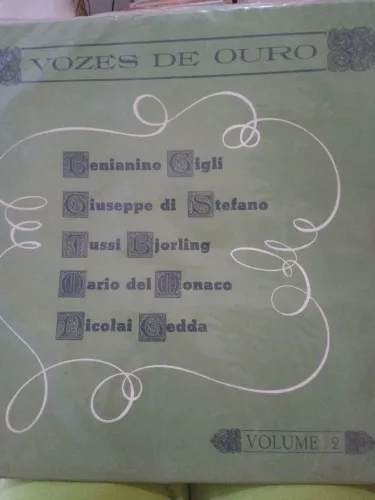 VOZES DE OURO
Benianino Gigli
Giuseppe di Stefano
Jussi Bjorling
Mario del Monaco
Nicolai Gedda
VOLUME 2